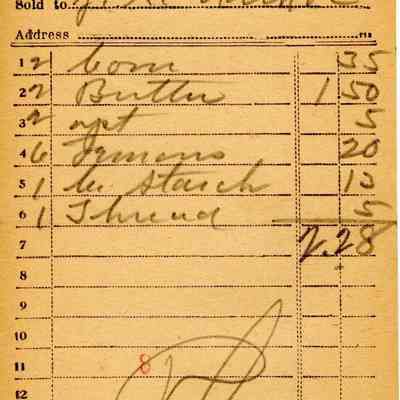 Sold to
Address
1 2 Corn 35
2 2 Butter 1 50
3 2 5
4 6 Lemons 20
5 1 Starch 13
6 1 Thread 5
7 2.28
8
9
10
11 8
12